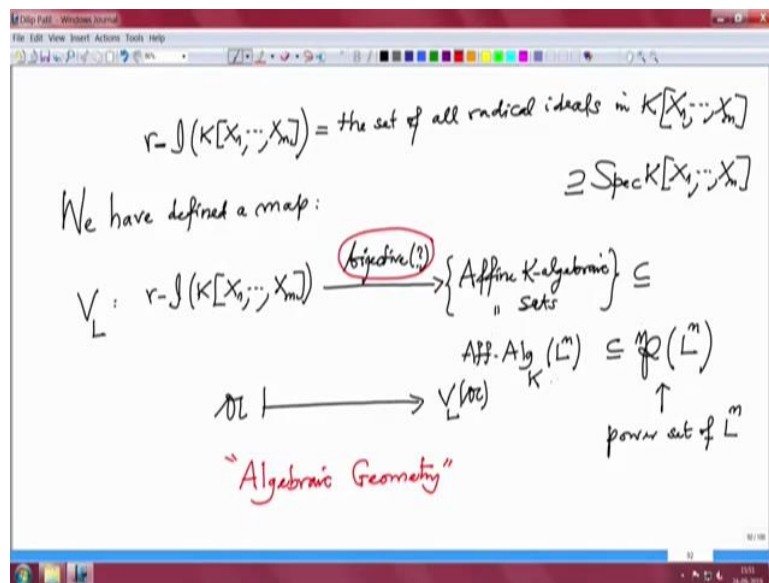 Dilip Patil - Windows Journal
File Edit View Insert Actions Tools Help
r-I(K[X₁,...,Xₙ]) = the set of all radical ideals in K[X₁,...,Xₙ]
⊇ Spec K[X₁,...,Xₙ]
We have defined a map:
V_L : r-I(K[X₁,...,Xₙ]) bijective(?) → {Affine K-algebraic sets} ⊆
Aff. Alg_K (Lⁿ) ⊆ 𝔓(Lⁿ)
𝔞 ↦ V_L(𝔞)
↑
power set of Lⁿ
"Algebraic Geometry"
92
15:51